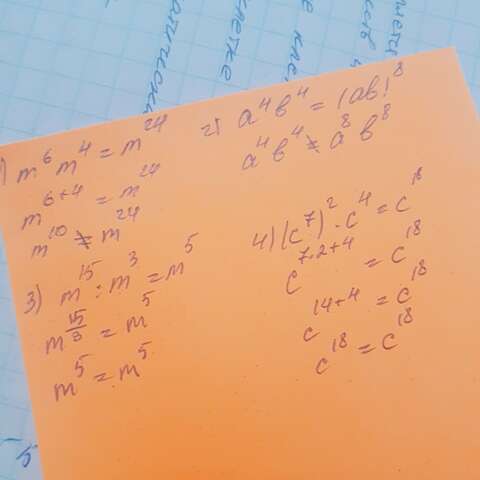 1) m⁶ m⁴ = m²⁴
m⁶⁺⁴ = m²⁴
m¹⁰ ≠ m²⁴
2) a⁴b⁴ = (ab)⁸
a⁴b⁴ ≠ a⁸b⁸
3) m¹⁵ : m³ = m⁵
m^(15/3) = m⁵
m⁵ = m⁵
4) (c⁷)² · c⁴ = c¹⁸
c^(7·2+4) = c¹⁸
c¹⁴⁺⁴ = c¹⁸
c¹⁸ = c¹⁸
клетке